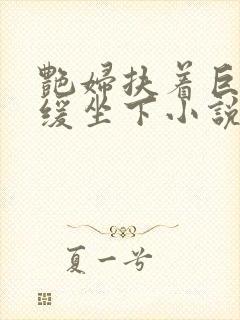 艷婦扶着巨
緩坐下小說
夏一兮